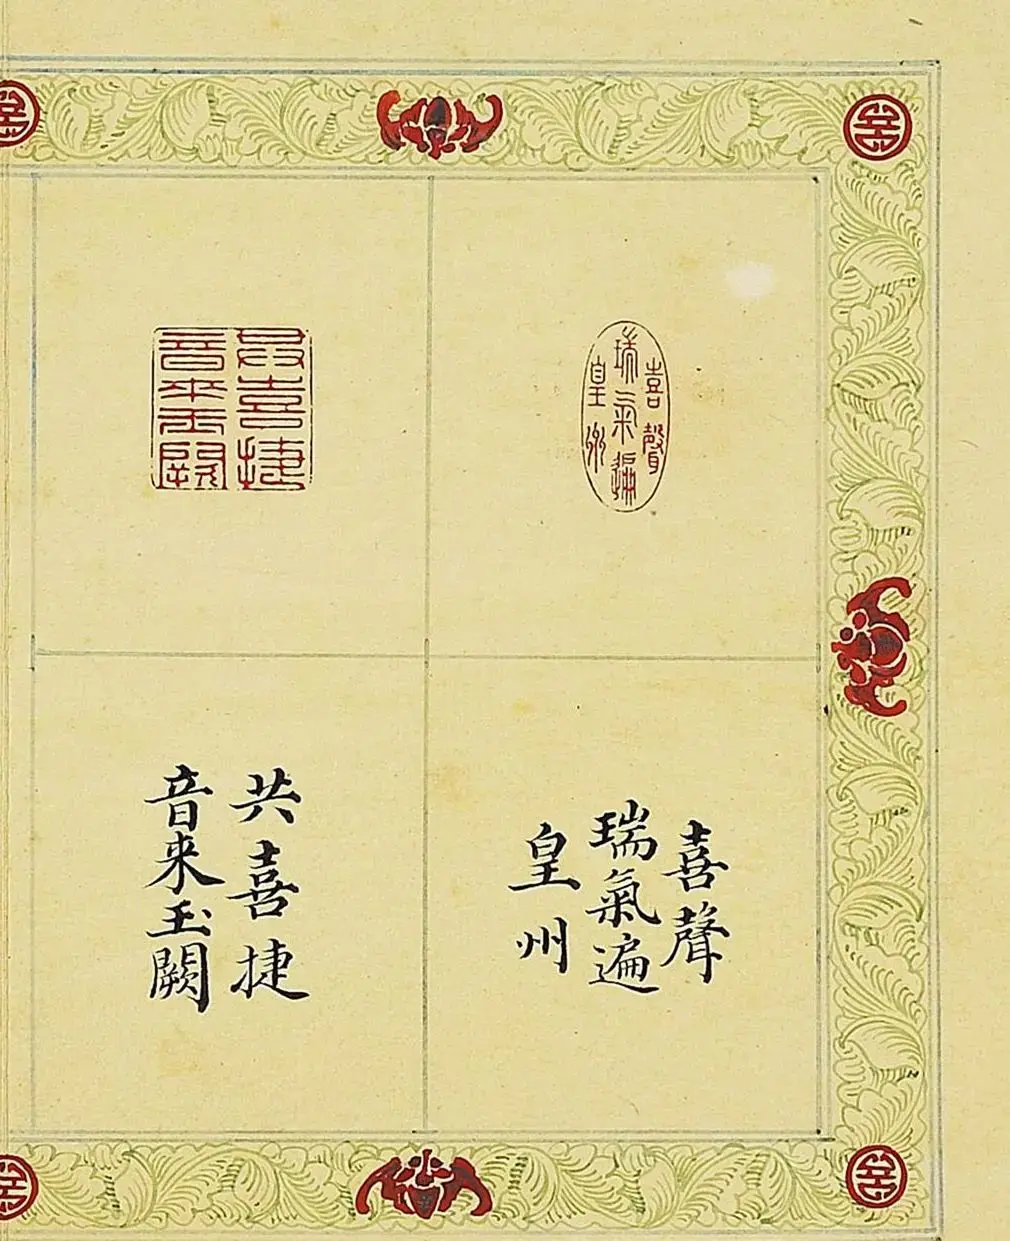 喜聲
瑞氣遍
皇州
喜聲
瑞氣遍
皇州
共喜捷
音来玉闕
共喜捷
音来玉闕